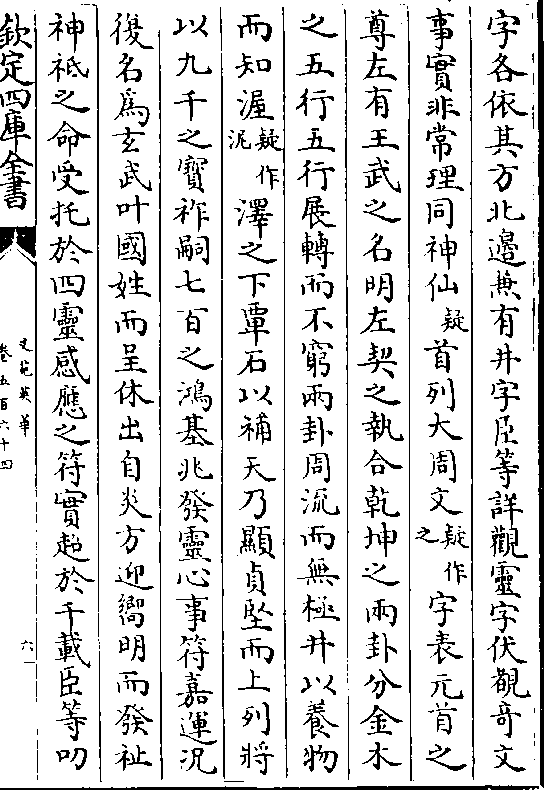 字各依其方北邊兼有井字臣等詳觀靈字伏覩竒文
事實非常理同神仙疑首列大周文疑作之字表元首之
尊左有王武之名明左契之執合乾坤之兩卦分金木
之五行五行展轉而不窮兩卦周流而無極井以養物
而知渥疑作泥澤之下覃石以補天乃顯貞堅而上列將
以九千之寳祚嗣七百之鴻基兆發靈心事符嘉運况
復名為玄武叶國姓而呈休出自炎方迎嚮明而發祉
神祇之命受托於四靈感應之符實超於千載臣等叨
欽定四庫全書
文苑英華
卷五百六十四
六